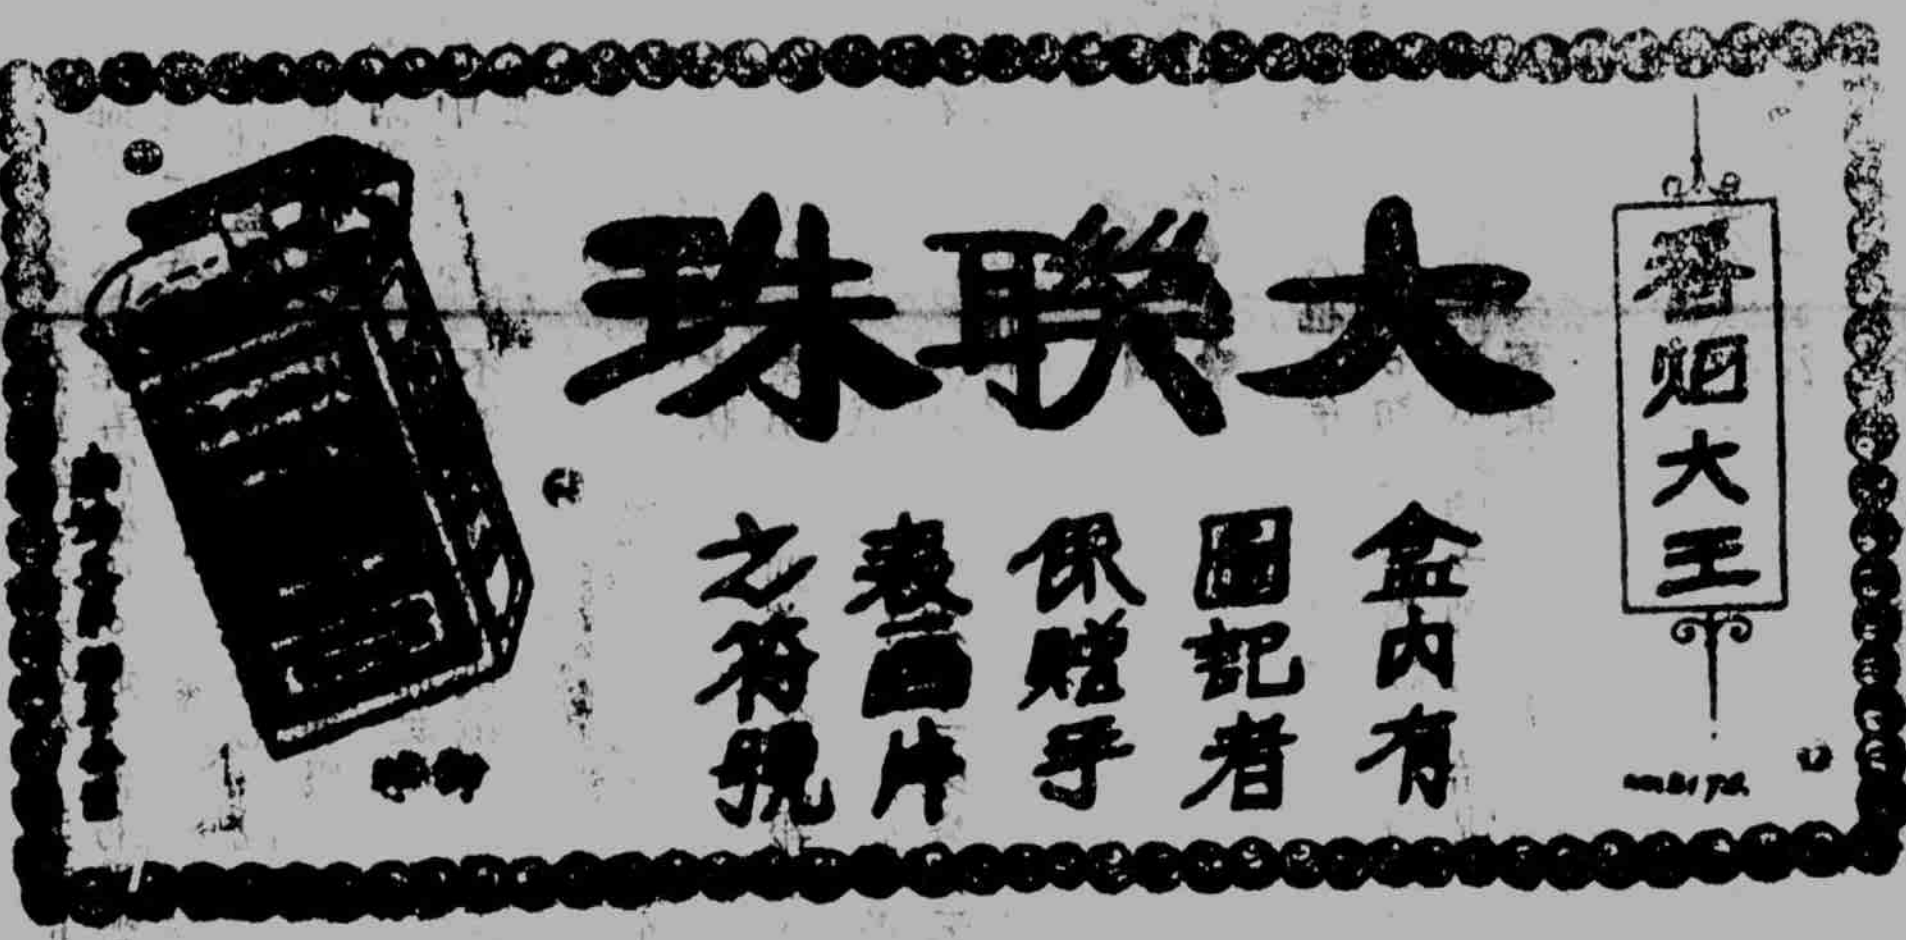 香烟大王
大聯珠
盒内有
圖記者
係贈手
表畫片
之符號